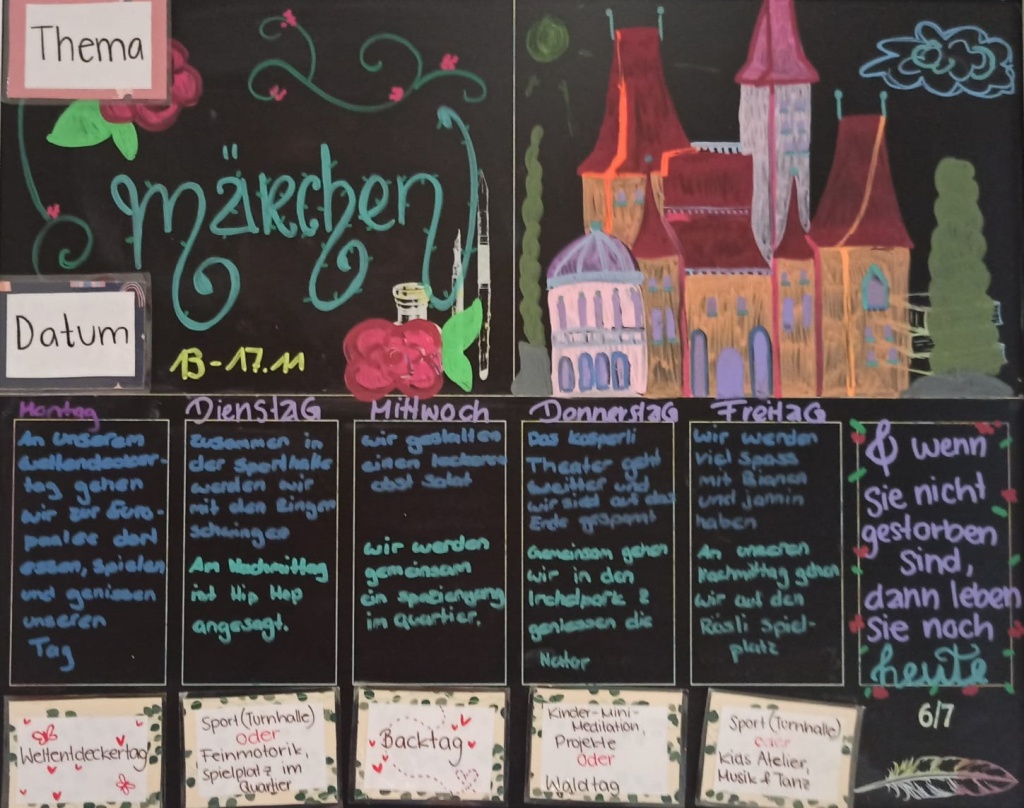 Thema
Märchen
Datum
13-17.11
Montag
An unserem
weltendecker-
tag gehen
wir zur Euro-
paalee dort
essen, spielen
und geniessen
unseren
Tag
Dienstag
zusammen in
der sporthalle
werden wir
mit den Ringen
schwingen
Am Nachmittag
ist Hip Hop
angesagt.
Mittwoch
wir gestalten
einen leckeren
obst salat
wir werden
gemeinsam
ein spaziergang
im quartier.
Donnerstag
Das kasperli
Theater geht
weitter und
wir sied auf das
Ende gespannt
Gemeinsam gehen
wir in den
Irchelpark &
geniessen die
Natur
Freitag
wir werden
viel spass
mit Bianen
und jamin
haben
An unseren
Nachmittag gehen
wir auf den
Rösli Spiel-
platz
& wenn
sie nicht
gestorben
sind,
dann leben
sie noch
heute
6/7
Weltentdeckertag
Sport (Turnhalle)
oder
Feinmotorik,
Spielplatz im
Quartier
Backtag
Kinder-Mini-
Meditation,
Projekte
oder
Waldtag
Sport (Turnhalle)
oder
Kids Atelier,
Musik & Tanz